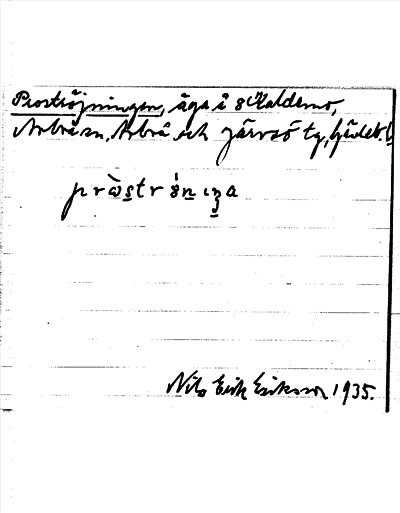 Proströjningen, äga å 8 Kaldemo,
Arbrå sn, Arbrå och Järvsö tg, Gävleb. l
pràstrǿnıŋa
Nils Erik Eriksson 1935.